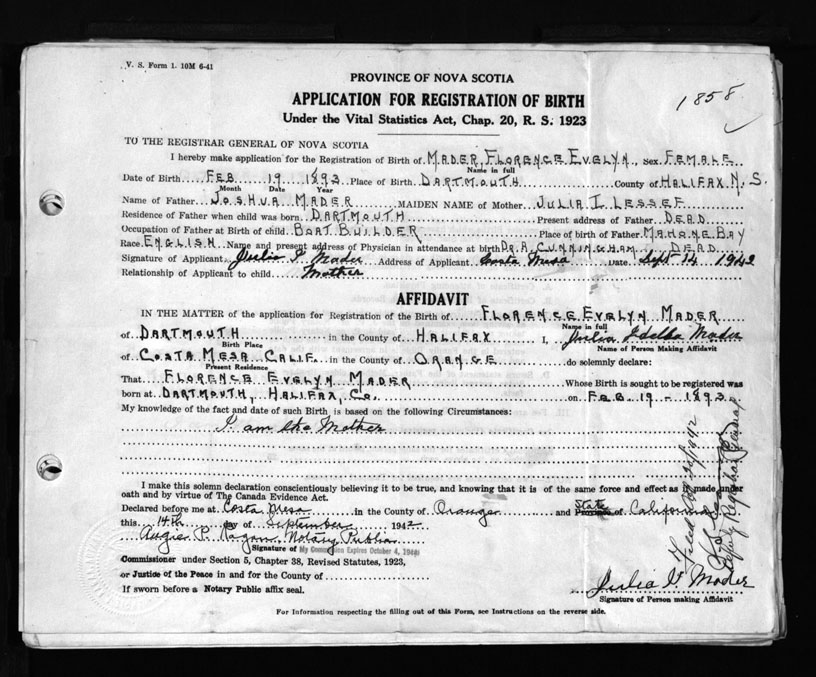 V. S. Form 1. 10M 6-41
PROVINCE OF NOVA SCOTIA
APPLICATION FOR REGISTRATION OF BIRTH
Under the Vital Statistics Act, Chap. 20, R. S. 1923
1858
TO THE REGISTRAR GENERAL OF NOVA SCOTIA
I hereby make application for the Registration of Birth of MADER, FLORENCE EVELYN, Sex FEMALE
Name in full
Date of Birth FEB 19 1893 Place of Birth DARTMOUTH County of HALIFAX N. S.
Month Date Year
Name of Father JOSHUA MADER MAIDEN NAME of Mother JULIA I. LESSEF
Residence of Father when child was born DARTMOUTH Present address of Father DEAD
Occupation of Father at Birth of child BOAT BUILDER Place of birth of Father MAHONE BAY
Race ENGLISH Name and present address of Physician in attendance at birth DR. A. CUNNINGHAM. DEAD
Signature of Applicant Julia I. Mader Address of Applicant Costa Mesa Date Sept 14 1942
Relationship of Applicant to child Mother
AFFIDAVIT
IN THE MATTER of the application for Registration of the Birth of FLORENCE EVELYN MADER
Name in full
of DARTMOUTH in the County of HALIFAX I, Julia Idella Mader
Birth Place Name of Person Making Affidavit
of COSTA MESA CALIF. in the County of ORANGE do solemnly declare:
Present Residence
That FLORENCE EVELYN MADER Whose Birth is sought to be registered was
born at DARTMOUTH, HALIFAX, CO. on FEB. 19 - 1893
My knowledge of the fact and date of such Birth is based on the following Circumstances:
I am the Mother
I make this solemn declaration conscientiously believing it to be true, and knowing that it is of the same force and effect as if made under
oath and by virtue of The Canada Evidence Act.
Declared before me at Costa Mesa in the County of Orange and State of California
this 14th day of September 1942
Augie P. Hagan, Notary Public
Signature of My Commission Expires October 4, 1944
Commissioner under Section 5, Chapter 38, Revised Statutes, 1923,
or Justice of the Peace in and for the County of
If sworn before a Notary Public affix seal.
Julia I. Mader
Signature of Person making Affidavit
For Information respecting the filling out of this Form, see Instructions on the reverse side.
Filed 1942
Deputy Registrar General